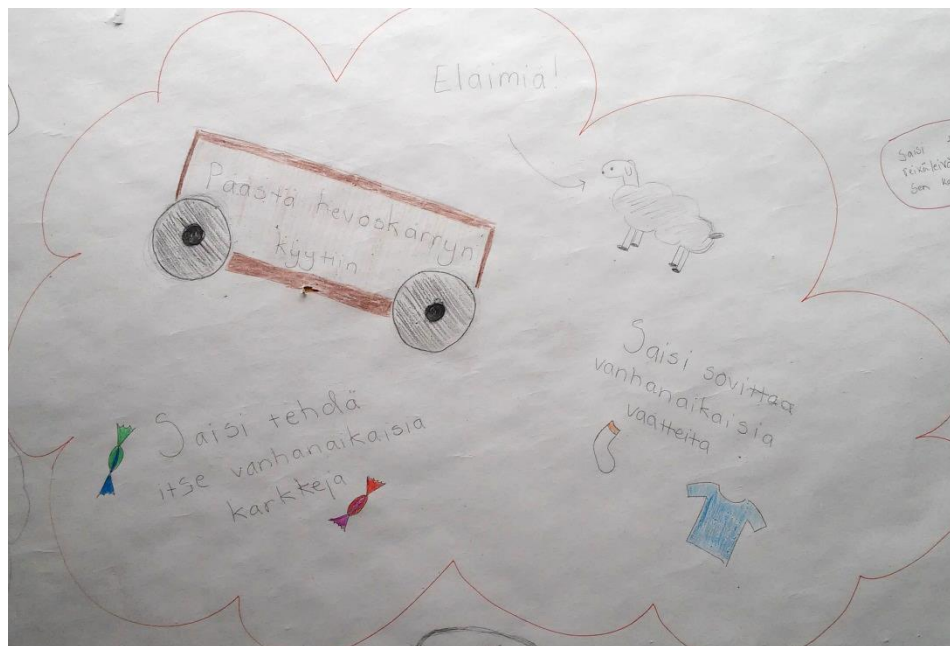 Eläimiä!
Päästä hevoskärryn
kyytiin
Saisi sovittaa
vanhanaikaisia
vaatteita
Saisi tehdä
itse vanhanaikaisia
karkkeja
Saisi